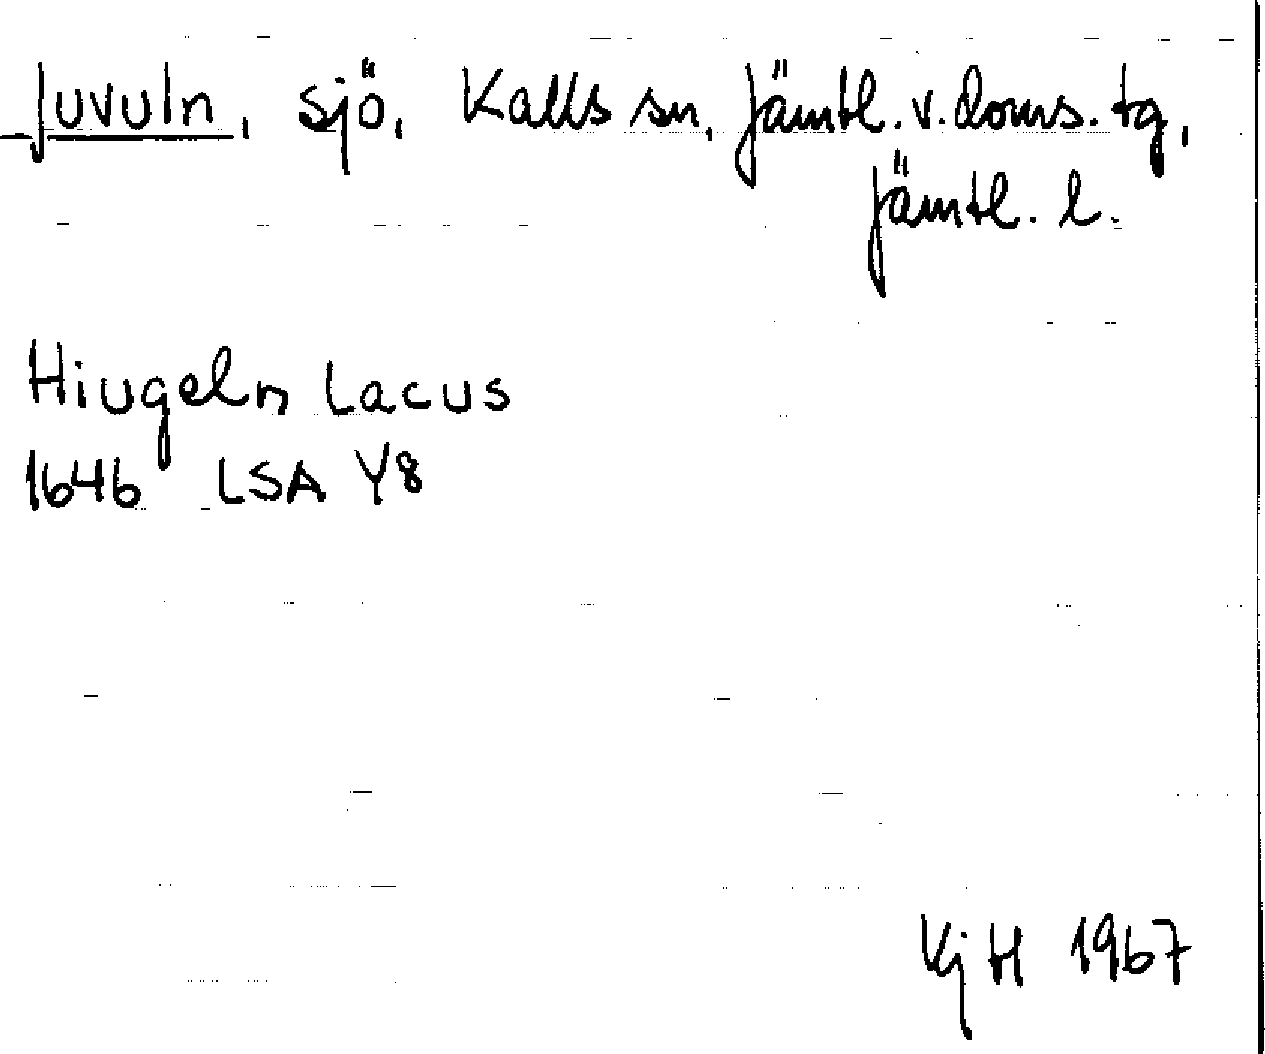 Juvuln, sjö, Kalls sn, Jämtl. v. doms. tg,
Jämtl. l.
Hiugeln Lacus
1646 LSA Y8
Kj H 1967